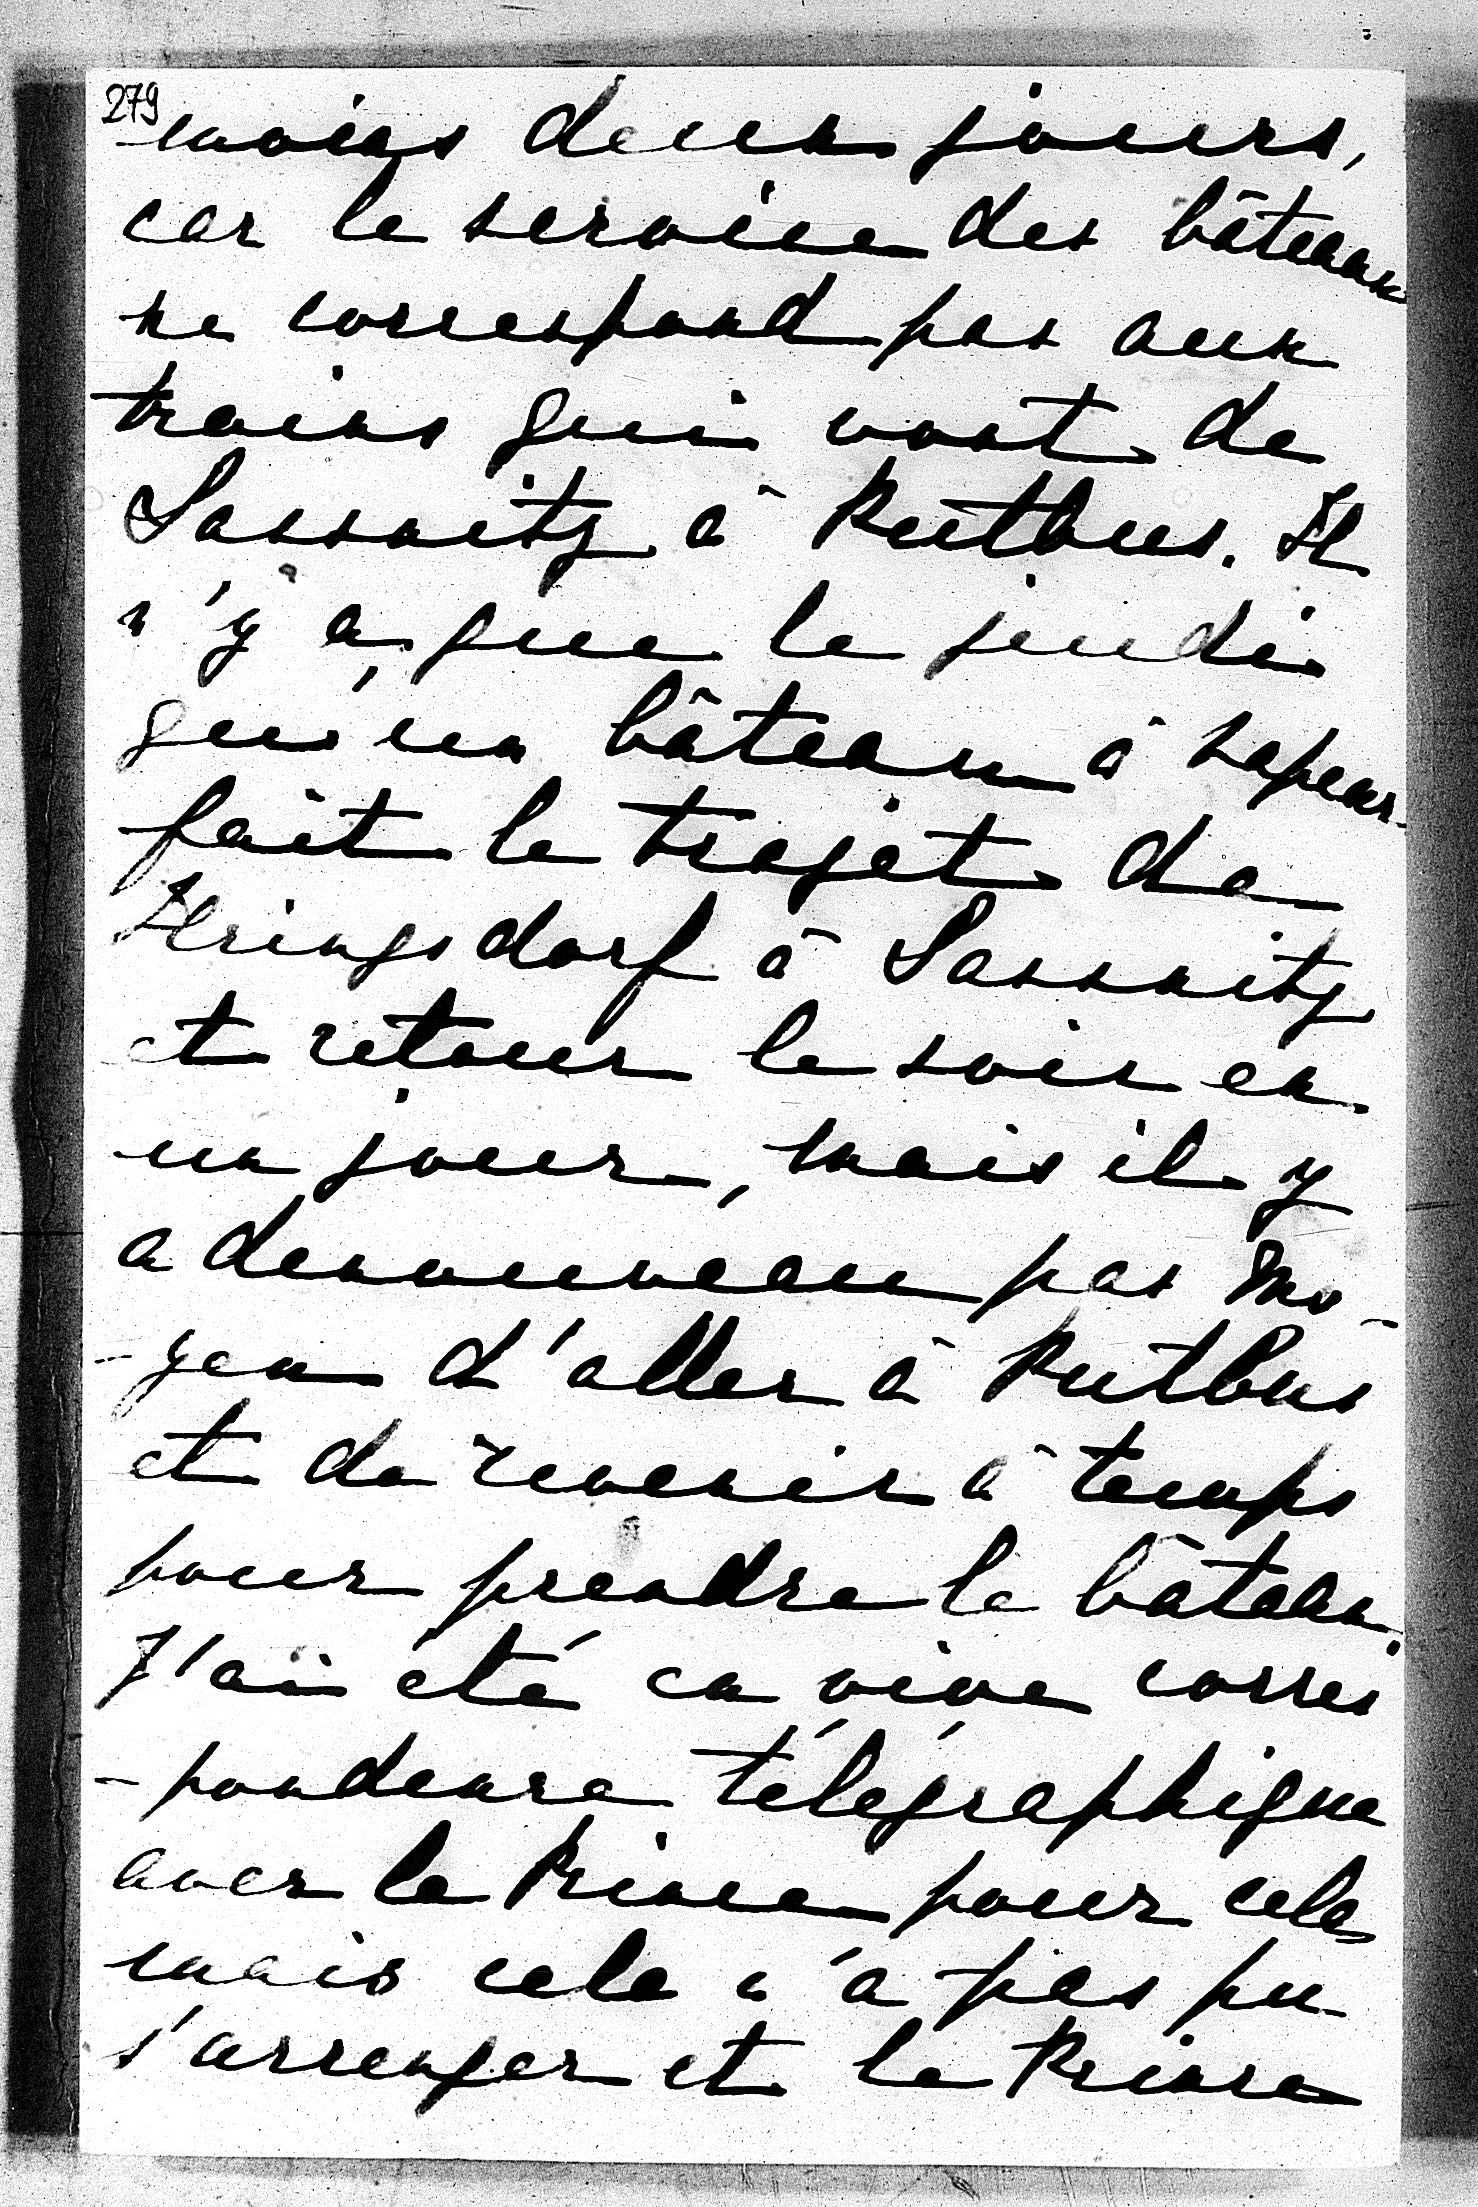 279
moins deux jours,
car le service des bâteaux
ne correspond pas aux
trains qui vont de
Sassnitz à Putbus. Il
n'y a que le jeudi
qu'un bâteau à vapeur
fait le trajet de
Hringsdorf à Sassnitz
et retour le soir en
un jour, mais il y
a denouveau pas mo-
-yen d'aller à Putbus
et de revenir à temps
pour prendre le bâteau.
J'ai été en vive corres
-pondence télégraphique
avec le Prince pour cela
mais cela n'a pas pu
s'arrenger et le Prince